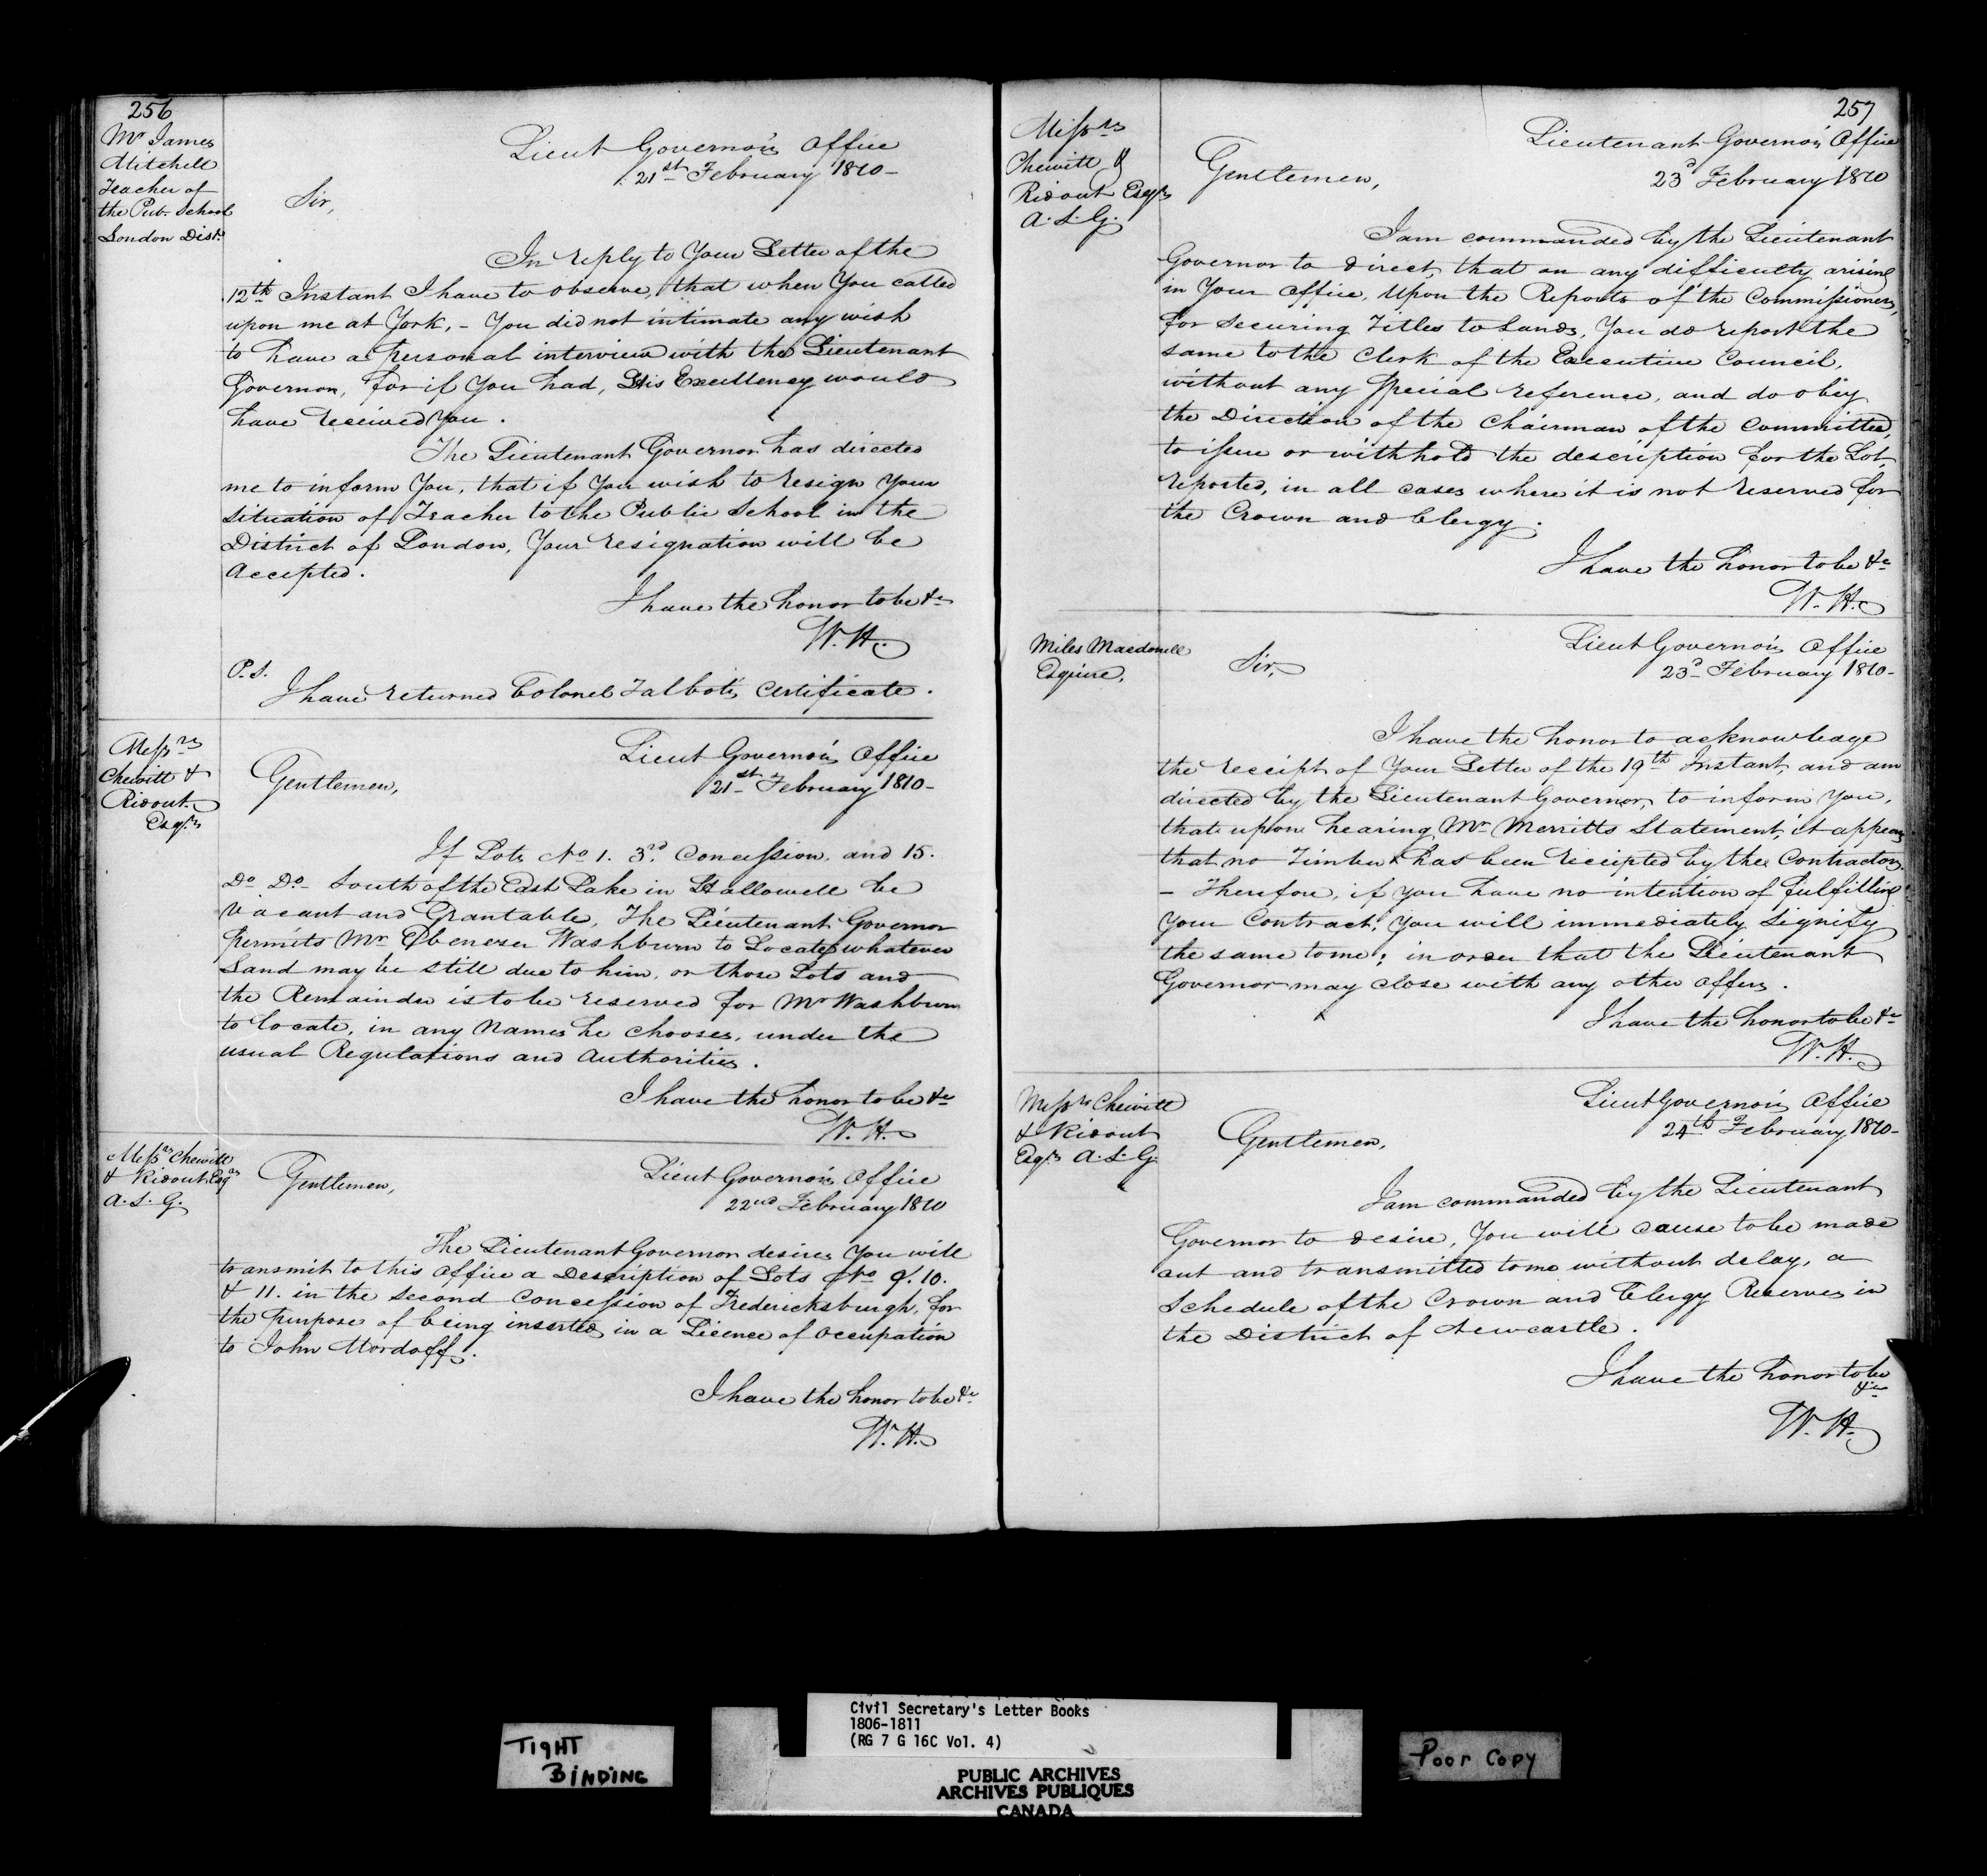 256
Mr James
Mitchell
Teacher of
the Pub. School
London Dist.
Lieut Governor's Office
21st February 1810-
Sir,
In reply to Your Letter of the
12th Instant I have to observe, that when You called
upon me at York, - You did not intimate any wish
to have a personal interview with the Lieutenant
Governor, for if You had, His Excellency would
have received You.
The Lieutenant Governor has directed
me to inform You, that if You wish to resign Your
Situation of Teacher to the Public School in the
District of London, Your resignation will be
Accepted.
I have the honor to be &c
W. H.
P.S.
I have returned Colonel Talbot's Certificate.
Messrs
Chewitt &
Ridout
Esqrs
Lieut Governor's Office
21st February 1810-
Gentlemen,
If Lots No 1. 3rd Concession, and 15.
Do Do South of the East Lake in Hallowell be
Vacant and Grantable, The Lieutenant Governor
permits Mr Ebenezer Washburn to Locate whatever
Land may be still due to him, on those Lots and
the Remainder is to be reserved for Mr Washburn
to locate, in any Names he chooses, under the
usual Regulations and Authorities.
I have the honor to be &c
W. H.
Messrs Chewitt
& Ridout Esqrs
A. S. G.
Lieut Governor's Office
22nd February 1810
Gentlemen,
The Lieutenant Governor desires You will
transmit to this Office a Description of Lots No 9. 10.
& 11. in the Second Concession of Fredericksburgh, for
the purpose of being inserted in a Licence of Occupation
to John Mordoff.
I have the honor to be &c
W. H.
257
Messrs
Chewitt &
Ridout Esqrs
A. S. G.
Lieutenant Governor's Office
23d February 1810
Gentlemen,
I am commanded by the Lieutenant
Governor to direct, that on any difficulty arising
in Your Office, Upon the Reports of the Commissioners,
for Securing Titles to Lands, You do report the
same to the Clerk of the Executive Council,
without any Special reference, and do obey
the Direction of the Chairman of the Committee,
to issue or withhold the description for the Lot,
reported, in all cases where it is not reserved for
the Crown and Clergy.
I have the honor to be &c
W. H.
Miles Macdonell
Esquire,
Lieut Governor's Office
23d February 1810-
Sir,
I have the honor to acknowledge
the receipt of Your Letter of the 19th Instant, and am
directed by the Lieutenant Governor, to inform You,
that upon hearing Mr Merritts Statement, it appears
that no Timber has been receipted by the Contractors.
- Therefore, if You have no intention of fulfilling
Your Contract, You will immediately Signify
the same to me; in order that the Lieutenant
Governor may close with any other Offers.
I have the honor to be &c
W. H.
Messrs Chewitt
& Ridout
Esqrs A. S. G.
Lieut Governor's Office
24th February 1810-
Gentlemen,
I am commanded by the Lieutenant
Governor to desire, You will cause to be made
out and transmitted to me without delay, a
Schedule of the Crown and Clergy Reserves in
the District of Newcastle.
I have the honor to be
&c
W. H.
TIGHT
BINDING
Civil Secretary's Letter Books
1806-1811
(RG 7 G 16C Vol. 4)
PUBLIC ARCHIVES
ARCHIVES PUBLIQUES
CANADA
Poor Copy